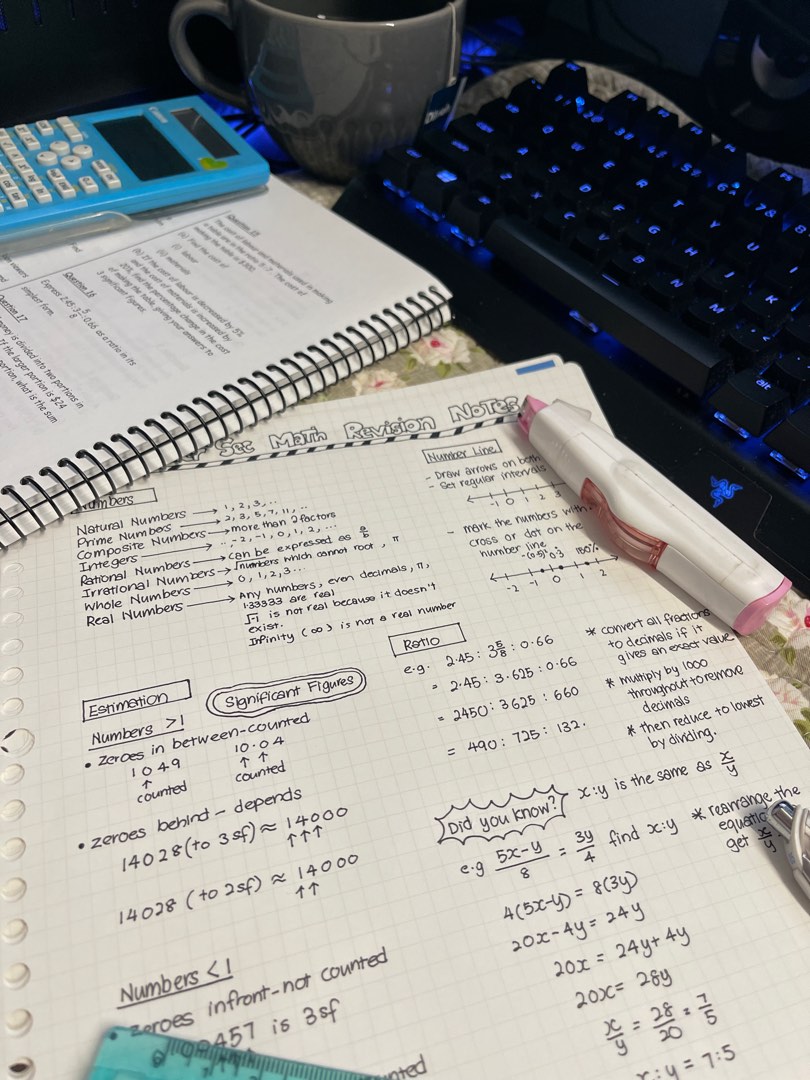 Question 15
The cost of labour and materials used in making
a table are in the ratio
making the table is
(a) Find the cost of
(i) labour
(ii) materials
(b) If the cost of labour is decreased by 5%
and the cost of materials is increased by
20%, find the percentage change in the cost
of making the table, giving your answers to
3 significant figures.
Question 16
Express 2.45 : 3 5/8 : 0.66 as a ratio in its
simplest form.
Question 17
money is divided into two portions in
If the larger portion is $24
portion, what is the sum
Sec Math Revision Notes
Numbers
Natural Numbers → 1, 2, 3, ..
Prime Numbers → 2, 3, 5, 7, 11, ..
Composite Numbers → more than 2 factors
Integers → .., -2, -1, 0, 1, 2, ...
Rational Numbers → can be expressed as a/b
Irrational Numbers → √numbers which cannot root, π
Whole Numbers → 0, 1, 2, 3...
Real Numbers → Any numbers, even decimals, π,
1.33333 are real
√-1 is not real because it doesn't
exist.
Infinity (∞) is not a real number
Number Line
- Draw arrows on both
- Set regular intervals
-1 0 1 2 3
- mark the numbers with
cross or dot on the
number line
-2 -1 0 1 2
Ratio
e.g. 2.45 : 3 5/8 : 0.66
= 2.45 : 3.625 : 0.66
= 2450 : 3625 : 660
= 490 : 725 : 132.
* convert all fractions
to decimals if it
gives an exact value
* multiply by 1000
throughout to remove
decimals
* then reduce to lowest
by dividing.
Estimation
Significant Figures
Numbers >1
• zeroes in between - counted
1049 10.04
↑ ↑ ↑
counted counted
• zeroes behind - depends
14028 (to 3sf) ≈ 14000
↑↑↑
14028 (to 2sf) ≈ 14000
↑↑
Numbers <1
zeroes infront - not counted
457 is 3sf
Did you know?
x:y is the same as x/y
e.g (5x-y)/8 = 3y/4 find x:y
* rearrange the
get x/y
4(5x-y) = 8(3y)
20x-4y = 24y
20x = 24y+4y
20x = 28y
x/y = 28/20 = 7/5
x:y = 7:5
Q W E R T Y U
S D F G H J K
X C V B N M
alt